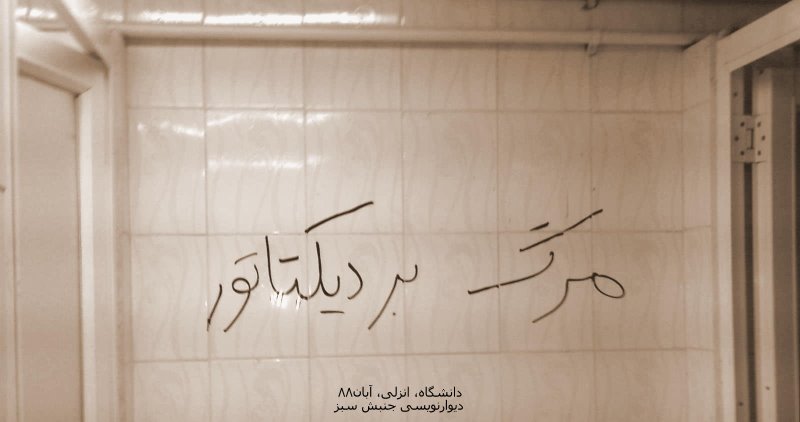 مرگ بر دیکتاتور
دانشگاه، انزلی، آبان۸۸
دیوارنویسی جنبش سبز